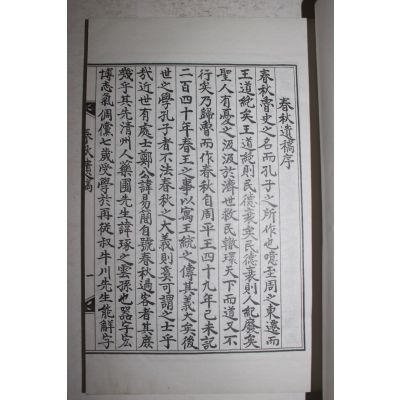 春秋遺稿序
春秋魯史之名而孔子之所作也噫至周之東遷而
王道絶矣王道絶則民德衰矣民德衰則人紀廢矣
聖人有憂之汲汲於濟世救民轍環天下而道又不
行矣乃歸魯而作春秋自周平王四十九年己未記
二百四十年春王之事以寓王統之傳其義大矣後
世之學孔子者不法春秋之大義則奚可謂之士乎
我近世有處士鄭公諱易簡自號春秋過客者其庶
幾乎其先清州人藥圃先生諱琢之雲孫也器宇宏
博志氣倜儻七歲受學於再從叔牛川先生能解字
春秋遺稿
一